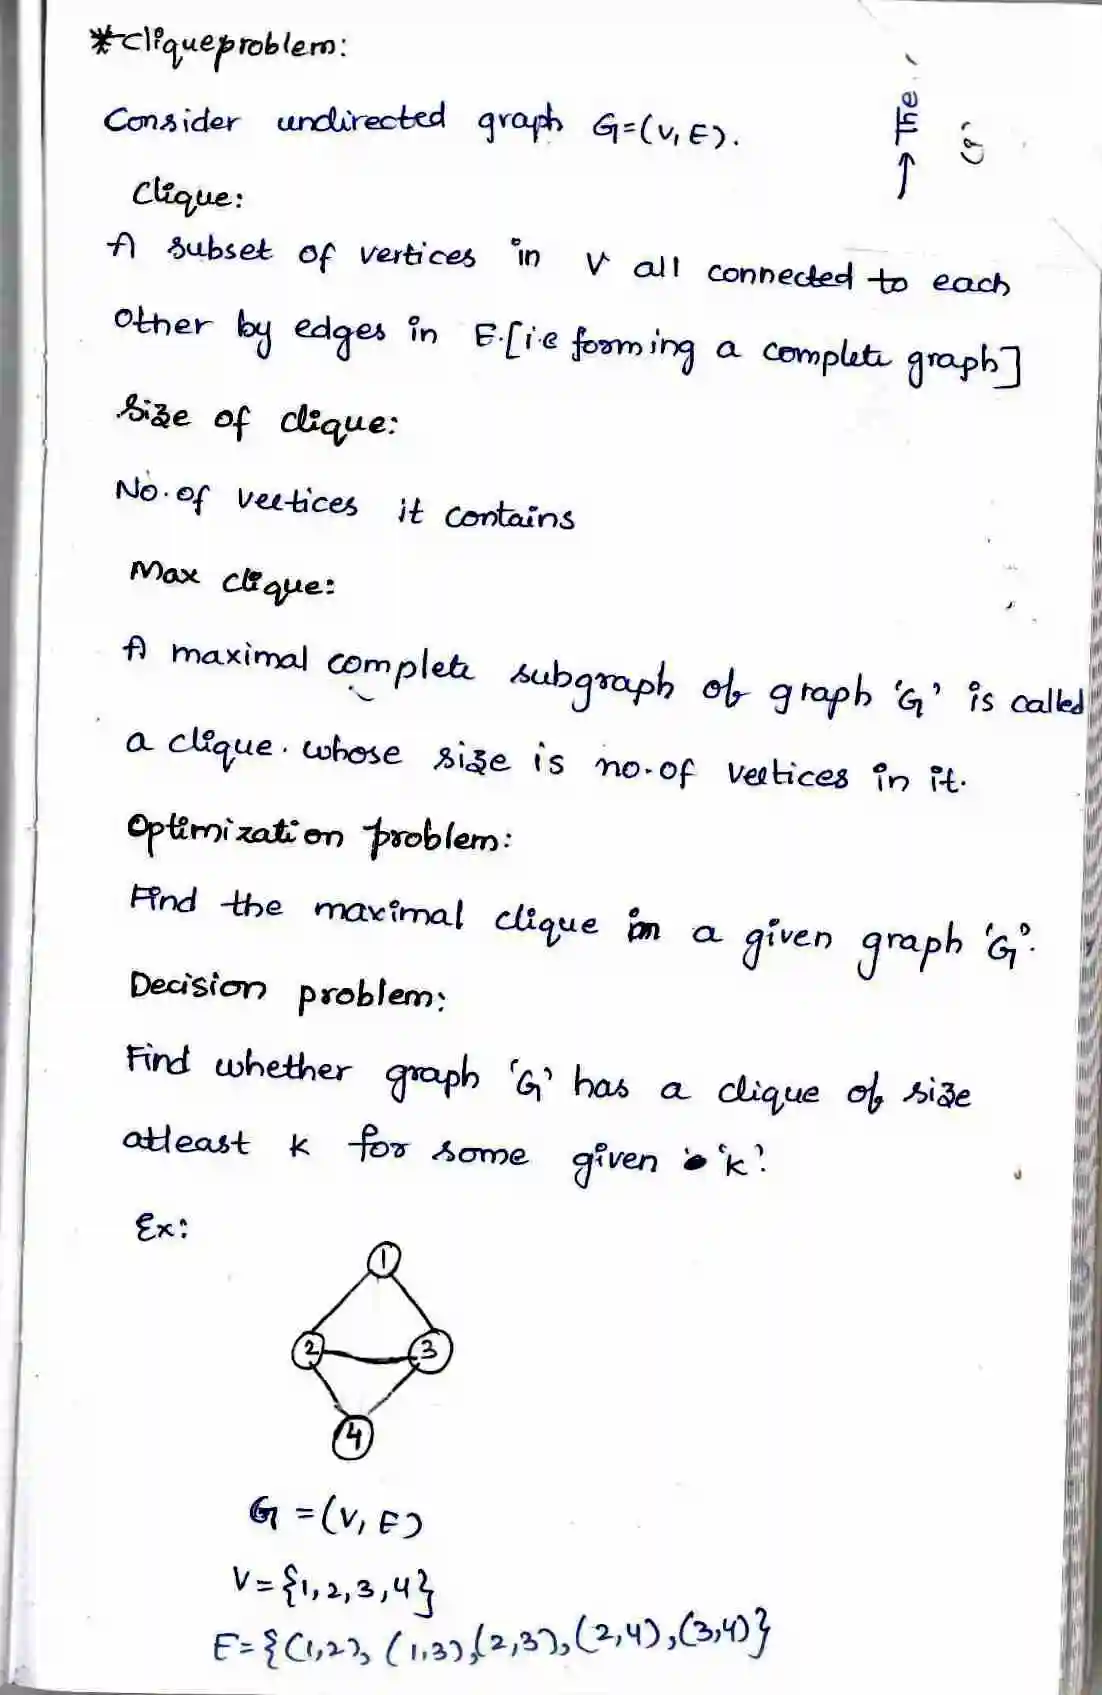 *Cliqueproblem:
Consider undirected graph G=(V,E).
Clique:
A subset of vertices in V all connected to each
other by edges in E.[i.e forming a complete graph]
Size of clique:
No.of vertices it contains
Max clique:
A maximal complete subgraph of graph 'G' is called
a clique. whose size is no.of vertices in it.
Optimization problem:
Find the maximal clique in a given graph 'G'.
Decision problem:
Find whether graph 'G' has a clique of size
atleast k for some given 'k'.
Ex:
1
2 3
4
G=(V,E)
V={1,2,3,4}
E={(1,2),(1,3),(2,3),(2,4),(3,4)}
→ The